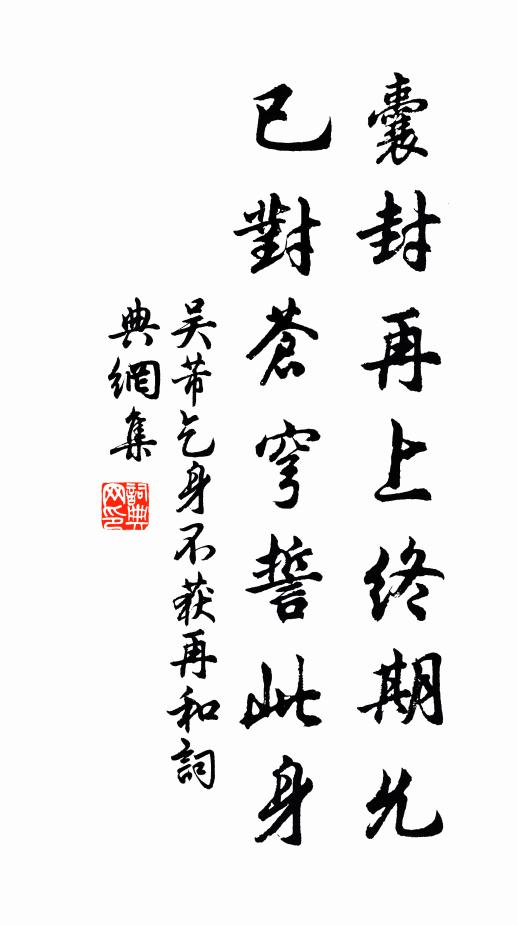 囊封再上终期允
已對蒼穹誓此身
吴芾乞身不获再和詞
典網集
詞典网印